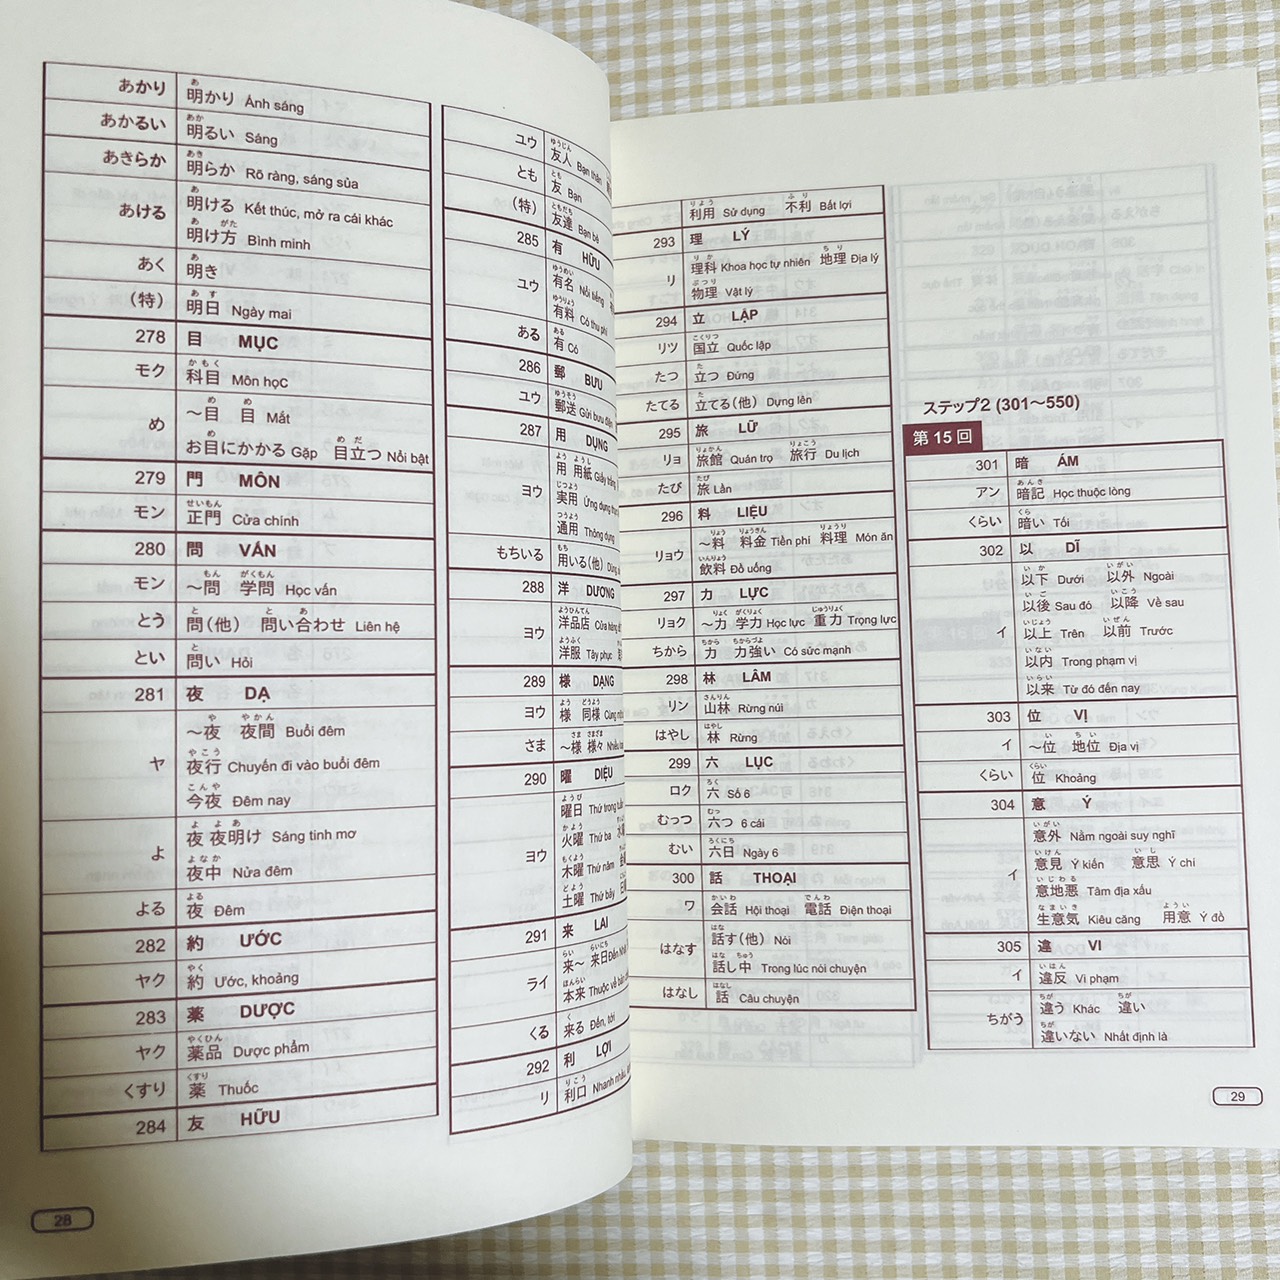 あかり 明かり Ánh sáng
あかるい 明るい Sáng
あきらか 明らか Rõ ràng, sáng sủa
あける 明ける Kết thúc, mở ra cái khác
明け方 Bình minh
あく 明き
(特) 明日 Ngày mai
278 目 MỤC
モク 科目 Môn học
め ～目 目 Mắt
お目にかかる Gặp 目立つ Nổi bật
279 門 MÔN
モン 正門 Cửa chính
280 問 VẤN
モン ～問 学問 Học vấn
とう 問(他) 問い合わせ Liên hệ
とい 問い Hỏi
281 夜 DẠ
ヤ ～夜 夜間 Buổi đêm
夜行 Chuyến đi vào buổi đêm
今夜 Đêm nay
よ 夜 夜明け Sáng tinh mơ
夜中 Nửa đêm
よる 夜 Đêm
282 約 ƯỚC
ヤク 約 Ước, khoảng
283 薬 DƯỢC
ヤク 薬品 Dược phẩm
くすり 薬 Thuốc
284 友 HỮU
28
ユウ 友人 Bạn thân
とも 友 Bạn
(特) 友達 Bạn bè
285 有 HỮU
ユウ 有名 Nổi tiếng
有料 Có thu phí
ある 有 Có
286 郵 BƯU
ユウ 郵送 Gửi bưu điện
287 用 DỤNG
ヨウ 用 用紙 Giấy
実用 Ứng dụng
通用 Thông dụng
もちいる 用いる(他)
288 洋 DƯƠNG
ヨウ 洋品店 Cửa hàng
洋服 Tây phục
289 様 DẠNG
ヨウ 様 同様 Cùng
さま ～様 様々 Nhiều
290 曜 DIỆU
ヨウ 曜日 Thứ trong tuần
火曜 Thứ ba
木曜 Thứ năm
土曜 Thứ bảy
291 来 LAI
ライ 来～ 来日 Đến
本来 Thuộc về
くる 来る Đến, tới
292 利 LỢI
リ 利口 Nhanh nhẩu,
利用 Sử dụng 不利 Bất lợi
293 理 LÝ
リ 理科 Khoa học tự nhiên 地理 Địa lý
物理 Vật lý
294 立 LẬP
リツ 国立 Quốc lập
たつ 立つ Đứng
たてる 立てる(他) Dựng lên
295 旅 LỮ
リョ 旅館 Quán trọ 旅行 Du lịch
たび 旅 Lần
296 料 LIỆU
リョウ ～料 料金 Tiền phí 料理 Món ăn
飲料 Đồ uống
297 力 LỰC
リョク ～力 学力 Học lực 重力 Trọng lực
ちから 力 力強い Có sức mạnh
298 林 LÂM
リン 山林 Rừng núi
はやし 林 Rừng
299 六 LỤC
ロク 六 Số 6
むっつ 六つ 6 cái
むい 六日 Ngày 6
300 話 THOẠI
ワ 会話 Hội thoại 電話 Điện thoại
はなす 話す(他) Nói
話し中 Trong lúc nói chuyện
はなし 話 Câu chuyện
ステップ2 (301～550)
第15回
301 暗 ÁM
アン 暗記 Học thuộc lòng
くらい 暗い Tối
302 以 DĨ
イ 以下 Dưới 以外 Ngoài
以後 Sau đó 以降 Về sau
以上 Trên 以前 Trước
以内 Trong phạm vi
以来 Từ đó đến nay
303 位 VỊ
イ ～位 地位 Địa vị
くらい 位 Khoảng
304 意 Ý
イ 意外 Nằm ngoài suy nghĩ
意見 Ý kiến 意思 Ý chí
意地悪 Tâm địa xấu
生意気 Kiêu căng 用意 Ý đồ
305 違 VI
イ 違反 Vi phạm
ちがう 違う Khác 違い
違いない Nhất định là
29